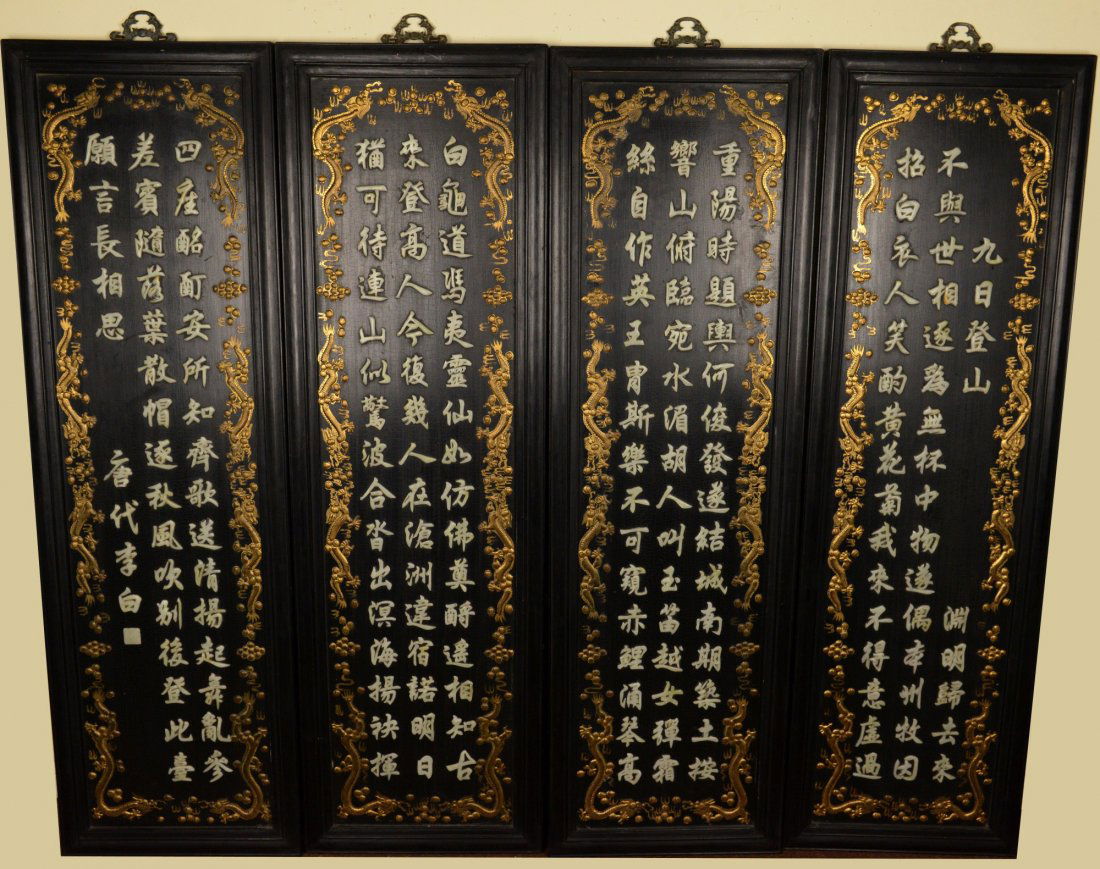 九日登山 淵明歸去來
不與世相逐爲無杯中物遂偶本州牧因
招白衣人笑酌黄花菊我來不得意虛過
重陽時題輿何俊發遂結城南期築土按
響山俯臨宛水湄胡人叫玉笛越女彈霜
絲自作英王胄斯樂不可窺赤鯉涌琴高
白龜道馮夷靈仙如仿佛奠酹遙相知古
來登高人今復幾人在滄洲違宿諾明日
猶可待連山似驚波合沓出溟海揚袂揮
四座酩酊安所知齊歌送清揚起舞亂參
差賓隨落葉散帽逐秋風吹別後登此臺
願言長相思
唐代李白